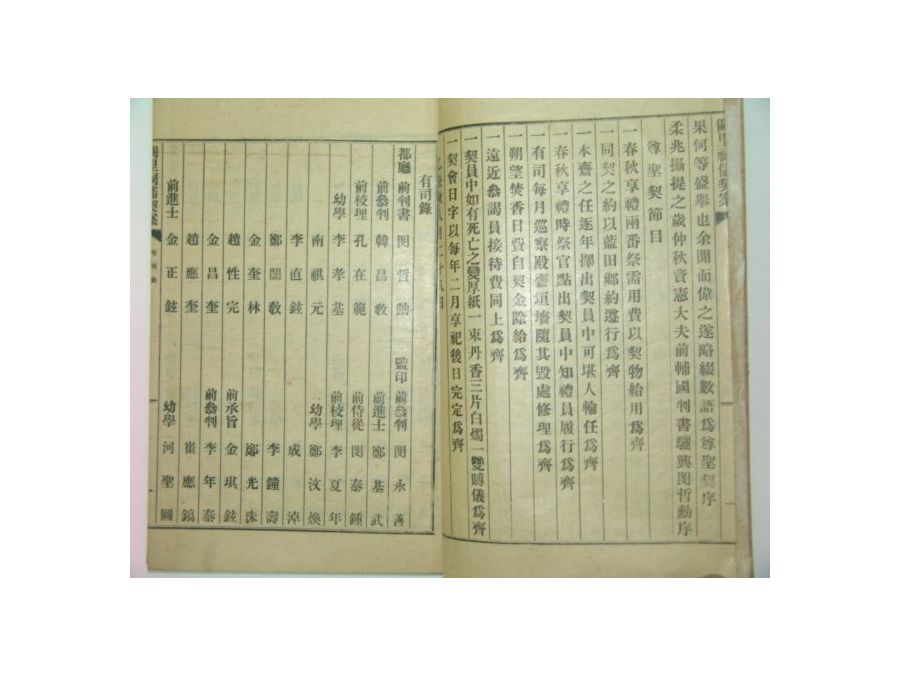 果何等盛擧也余聞而偉之遂略綴數語爲尊聖契序
柔兆攝提之歲仲秋資憲大夫前輔國判書驪興閔哲勳序
尊聖契節目
一春秋享禮兩番祭需用費以契物給用爲齊
一同契之約以藍田鄕約遵行爲齊
一本齋之任逐年擇出契員中可堪人輪任爲齊
一春秋享禮時祭官點出契員中知禮員履行爲齊
一有司每月巡察殿齋垣墻隨其毁處修理爲齊
一朔望焚香日費自契金除給爲齊
一遠近參謁員接待費同上爲齊
一契員中如有死亡之變厚紙一束丹香三片白燭一雙賻儀爲齊
一契會日字以每年二月享祀後日完定爲齊
有司錄
都廳 前判書 閔哲勳 監印 前參判 閔永善
前參判 韓昌敎 前進士 鄭基武
前校理 孔在範 前侍從 閔泰鍾
幼學 李孝基 前校理 李夏年
南祺元 幼學 鄭汶煥
李直鉉 成淖
鄭閏敎 李鐘壽
金奎林 鄭光洙
趙性完 前承旨 金琪鉉
金昌奎 前參判 李年泰
趙應奎 崔應鎬
前進士 金正鉉 幼學 河聖圖